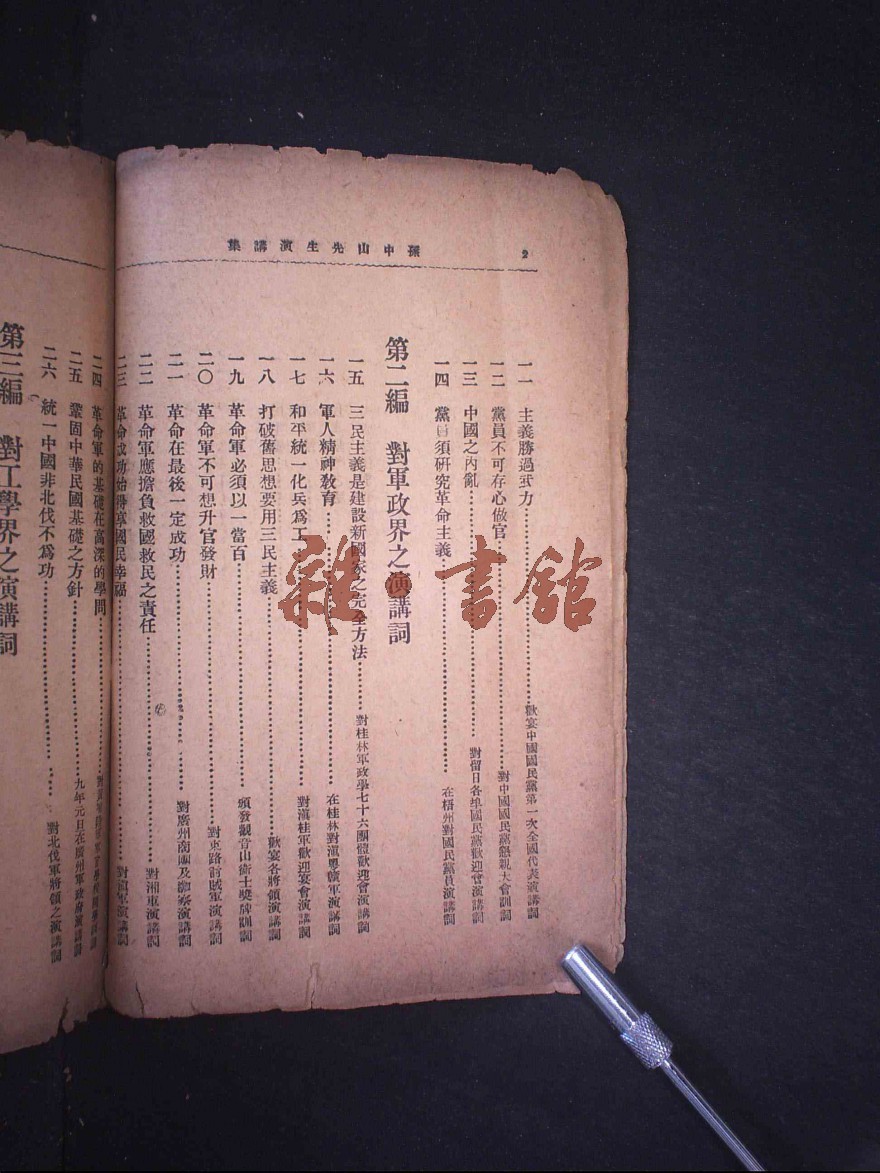 孫中山先生演講集 2
一一 主義勝過武力 歡宴中國國民黨第一次全國代表演講詞
一二 黨員不可存心做官 對中國國民黨懇親大會訓詞
一三 中國之內亂 對留日各埠國民黨歡迎會演講詞
一四 黨員須研究革命主義 在梧州對國民黨員演講詞
第二編 對軍政界之演講詞
一五 三民主義是建設新國家之完全方法 對桂林軍政學七十六團體歡迎會演講詞
一六 軍人精神教育 在桂林對滇粵贛軍演講詞
一七 和平統一化兵爲工 對滇桂軍歡迎宴會演講詞
一八 打破舊思想要用三民主義 歡宴各將領演講詞
一九 革命軍必須以一當百 頒發觀音山衞士獎牌訓詞
二〇 革命軍不可想升官發財 對東路討賊軍演講詞
二一 革命在最後一定成功 對廣州商團及警察演講詞
二二 革命軍應擔負救國救民之責任 對湘軍演講詞
二三 革命成功始得享國民幸福 對滇軍演講詞
二四 革命軍的基礎在高深的學問
二五 鞏固中華民國基礎之方針 九年元旦在廣州軍政府演講詞
二六 統一中國非北伐不爲功 對北伐軍將領之演講詞
第三編 對工學界之演講詞
雜·書館